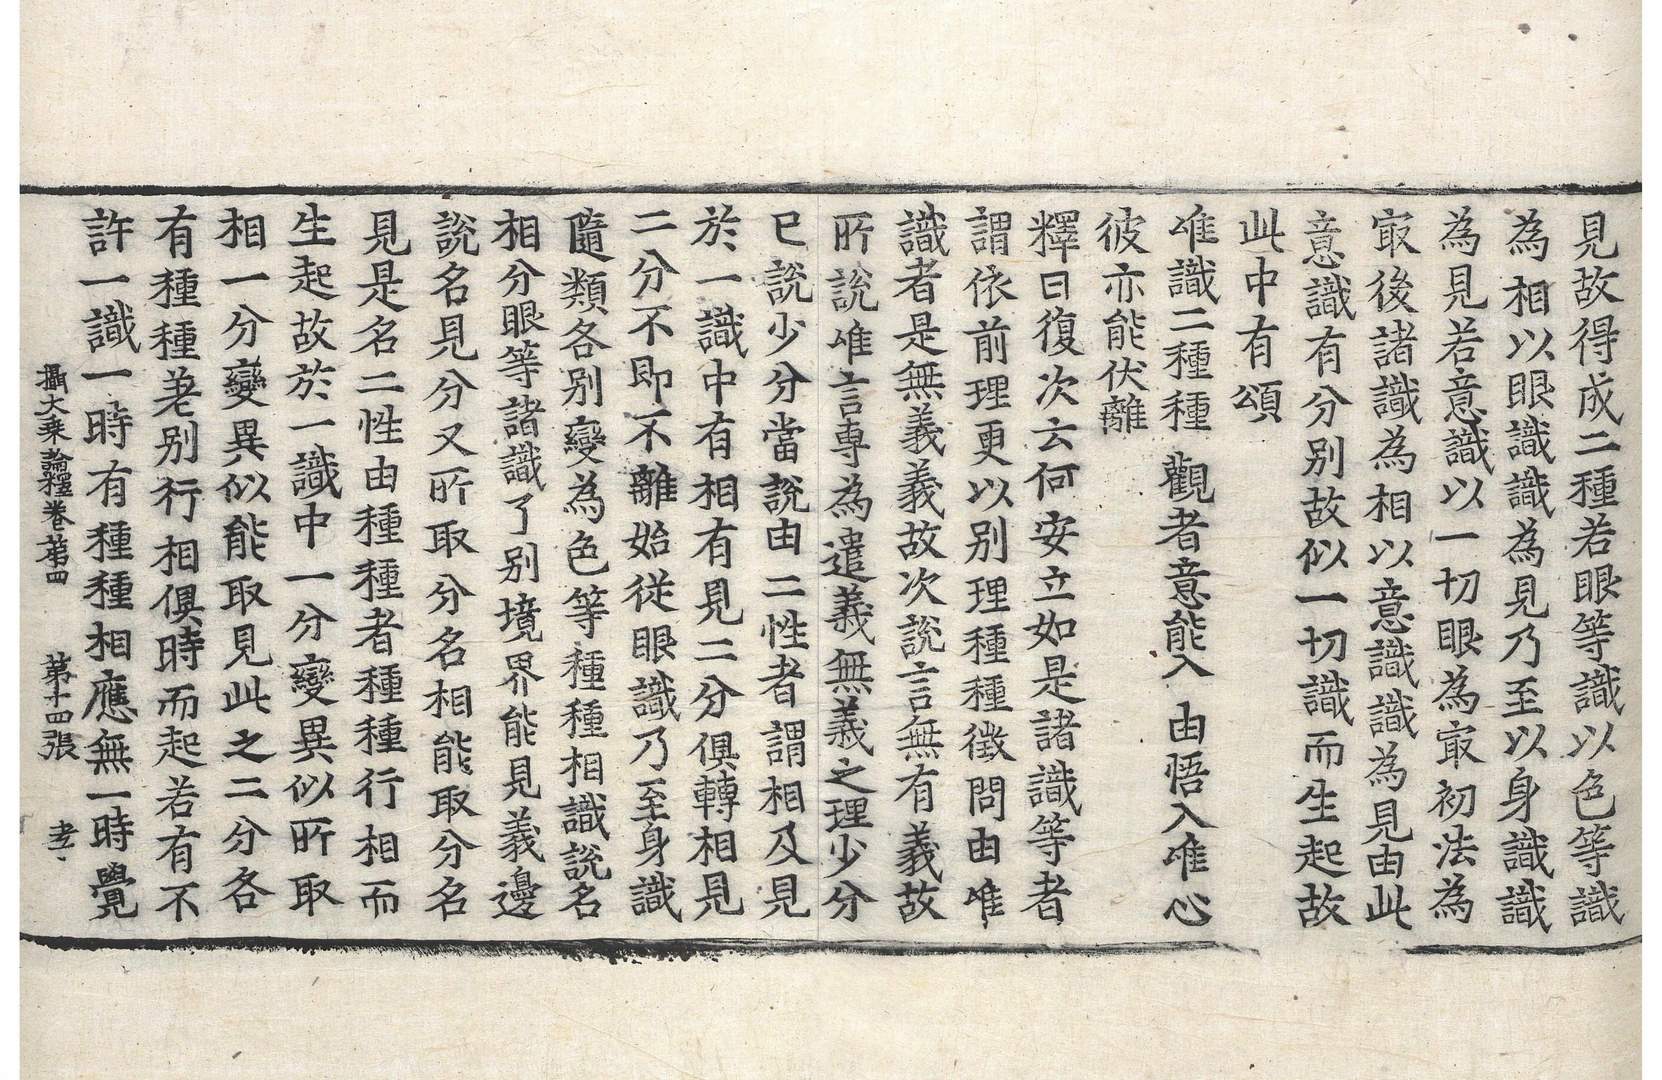 見故得成二種若眼等識以色等識
為相以眼識識為見乃至以身識識
為見若意識以一切眼為㝡初法為
㝡後諸識為相以意識識為見由此
意識有分別故似一切識而生起故
此中有頌
唯識二種種　觀者意能入　由悟入唯心
彼亦能伏離
釋曰復次云何安立如是諸識等者
謂依前理更以別理種種徵問由唯
識者是無義義故次說言無有義故
所說唯言專為遣義無義之理少分
已說少分當說由二性者謂相及見
於一識中有相有見二分俱轉相見
二分不即不離始從眼識乃至身識
隨類各別變為色等種種相識說名
相分眼等諸識了別境界能見義邊
說名見分又所取分名相能取分名
見是名二性由種種者種種行相而
生起故於一識中一分變異似所取
相一分變異似能取見此之二分各
有種種差別行相俱時而起若有不
許一識一時有種種相應無一時覺
攝大乘論釋卷第四　第十四張　孝